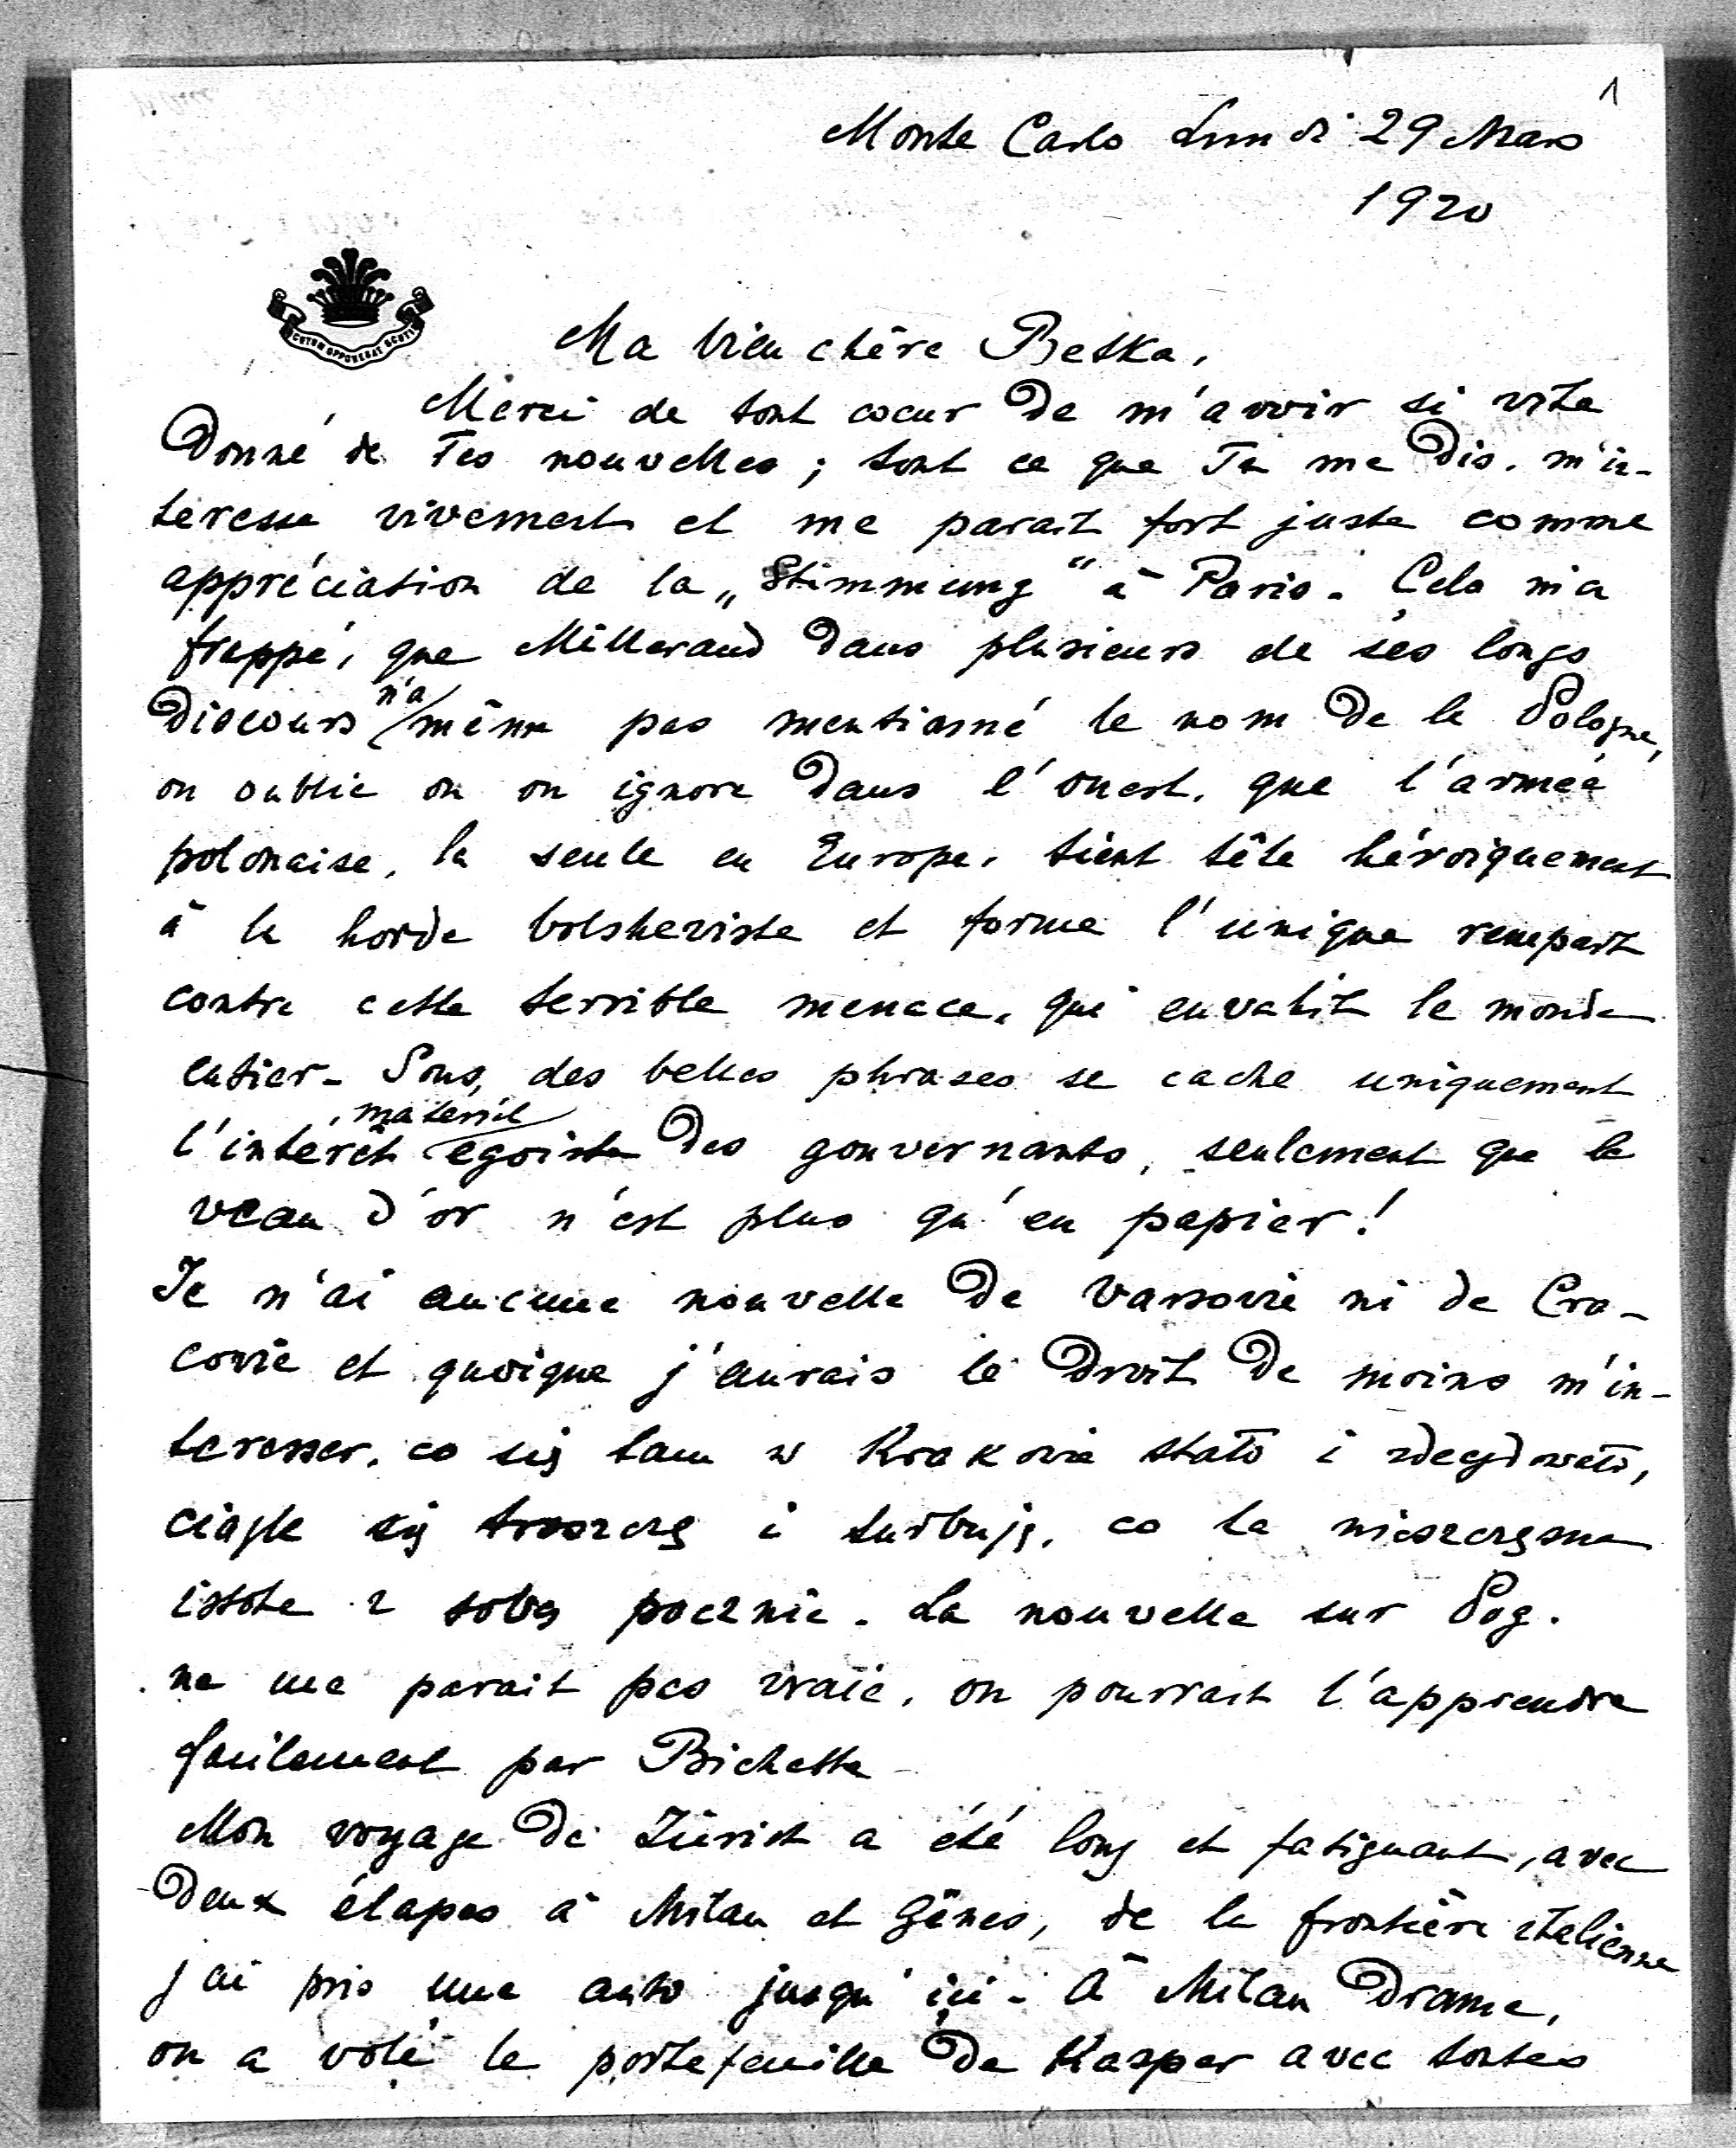 1
Monte Carlo Lundi 29 Mars
1920
Ma bien chère Betka,
Merci de tout coeur de m'avoir si vite
donné de Tes nouvelles ; tout ce que Tu me dis, m'in-
teresse vivement et me parait fort juste comme
appréciation de la „Stimmung" à Paris. Cela m'a
frappé, que Millerand dans plusieurs de ses longs
discours n'a même pas mentionné le nom de la Pologne,
on oublie ou on ignore dans l'ouest, que l'armée
polonaise, la seule en Europe, tient tête héroiquement
à la horde bolsheviste et forme l'unique rempart
contre cette terrible menace, qui envahit le monde
entier. Sous, des belles phrases se cache uniquement
l'intérêt matériel egoiste des gouvernants, seulement que le
veau d'or n'est plus qu'en papier!
Je n'ai aucune nouvelle de Varsovie ni de Cra-
covie et quoique j'aurais le droit de moins m'in-
teresser, co się tam w Krakowie stało i zdecydowało,
ciągle się troszczę i turbuję, co ta nieszczęsna
istota z sobą pocznie. La nouvelle sur Pog.
ne me parait pas vraie, on pourrait l'apprendre
facilement par Bichette
Mon voyage de Zürich a été long et fatiguant, avec
deux étapes à Milan et Gênes, de la frontière italienne
j'ai pris une auto jusqu'ici. À Milan drame,
on a volé le portefeuille de Kasper avec toutes